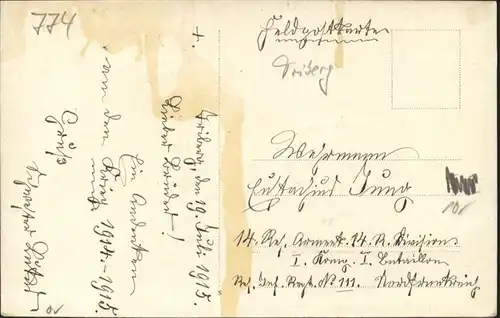 774
+.
Triberg, den 19. Juli 1915.
Lieber Bruder!
Ein Andenken
von dem Krieg 1914-1915.
Gruß
Feldpostkarte
Triberg
Wehrmann
Eustachius Jung
14. Res. Armeek. 14. R. Division
I. Komp. I. Bataillon
Res. Inf. Regt. No. 111. Nordfrankreich